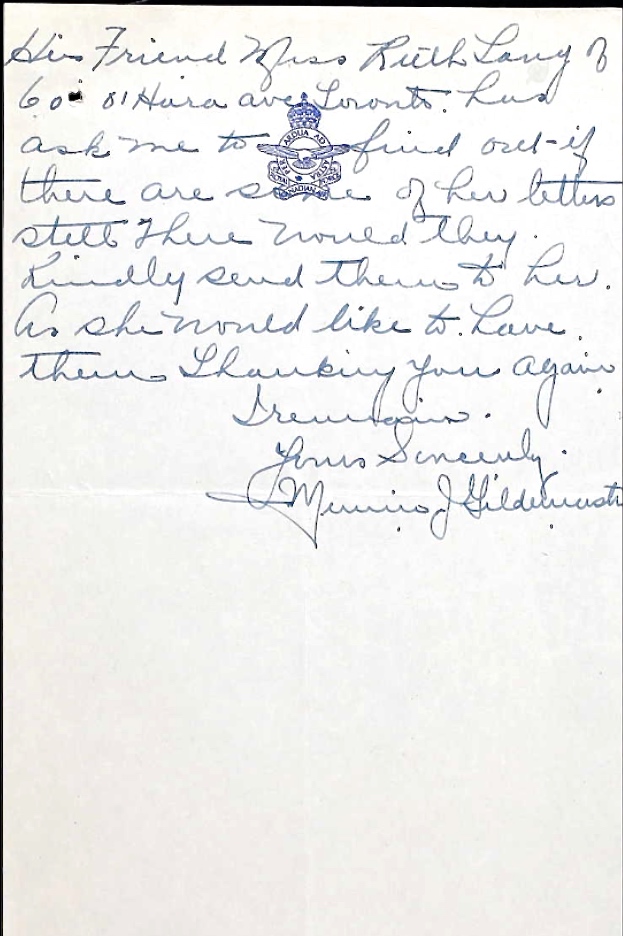 His Friend Miss Ruth Lang of
60 O'Hara ave Toronto. has
ask me to find out if
PER ARDUA AD ASTRA
ROYAL CANADIAN AIR FORCE
there are some of her letters
still There would they.
Kindly send them to her.
As she would like to have
them. Thanking you again
I remain.
Yours Sincerely.
J Gildemeist